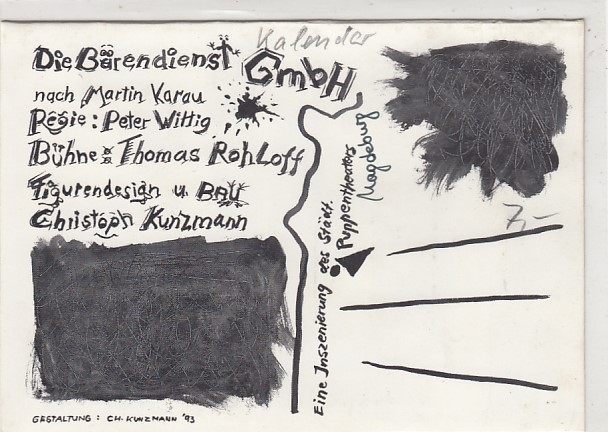 Kalender
Die Bärendienst GmbH
nach Martin Karau
Regie: Peter Wittig
Bühne: Thomas Rohloff
Figurendesign u. BAU
Christoph Kunzmann
GESTALTUNG: CH. KUNZMANN '93
Eine Inszenierung des Städt.
Puppentheaters
Magdeburg
7,-